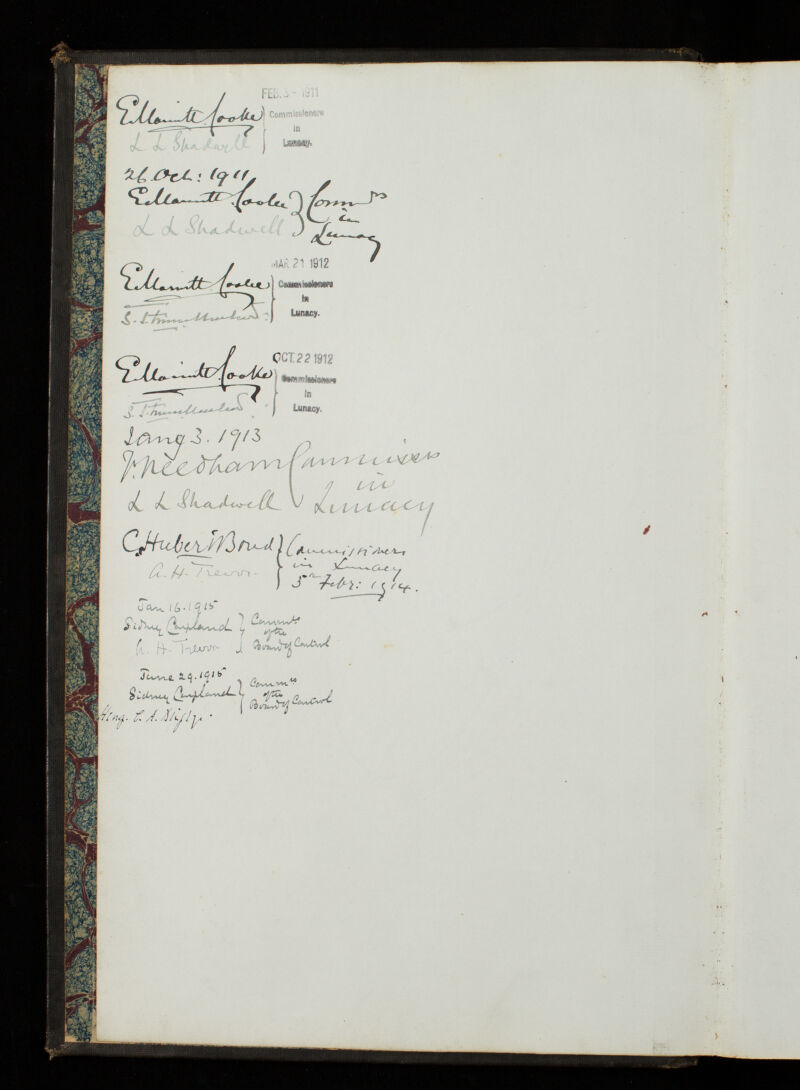 FEB. 3 - 1911
E Marriott Cooke } Commissioners
L L Shadwell in
Lunacy.
26 Oct: 1911
E Marriott Cooke } Commrs
L L Shadwell in
Lunacy
MAR 21 1912
E Marriott Cooke } Commissioners
in
Lunacy.
OCT. 22 1912
E Marriott Cooke } Commissioners
in
Lunacy.
3. 1913
F. Needham Commissrs
in
L L Shadwell Lunacy
C. Hubert Bond } Commissioners
A. H. Trevor. in Lunacy
5th Feby: 1914.
Jan 16. 1915
Sidney Coupland } Commrs
of the
A. H. Trevor Board of Control
June 29. 1915
Sidney Coupland } Commrs
of the
Board of Control